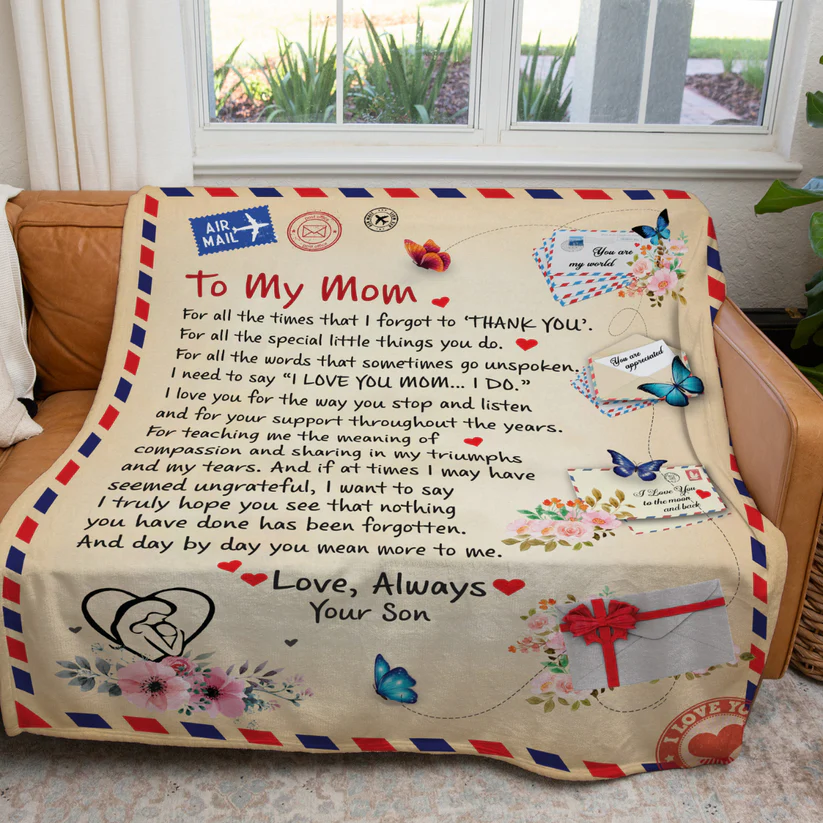 AIR
MAIL
You are
my world
To My Mom
For all the times that I forgot to ‘THANK YOU’.
For all the special little things you do.
For all the words that sometimes go unspoken.
I need to say “I LOVE YOU MOM... I DO.”
I love you for the way you stop and listen
and for your support throughout the years.
For teaching me the meaning of
compassion and sharing in my triumphs
and my tears. And if at times I may have
seemed ungrateful, I want to say
I truly hope you see that nothing
you have done has been forgotten.
And day by day you mean more to me.
Love, Always
Your Son
You are
appreciated
I Love You
to the moon
and back
I LOVE YO